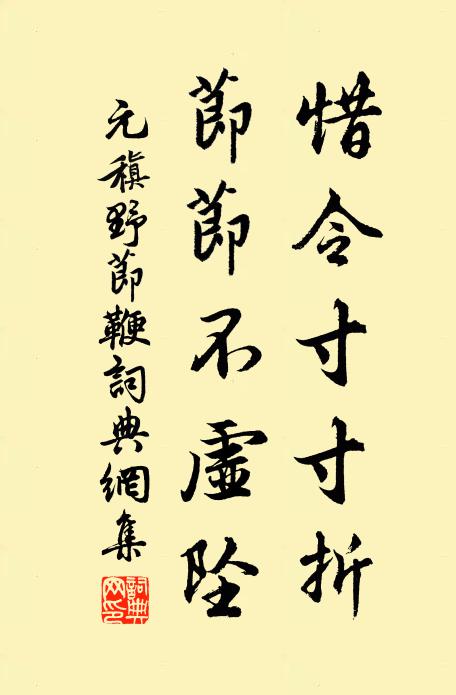 惜令寸寸折
節節不虛墜
元稹野節鞭詞典網集
詞典网印